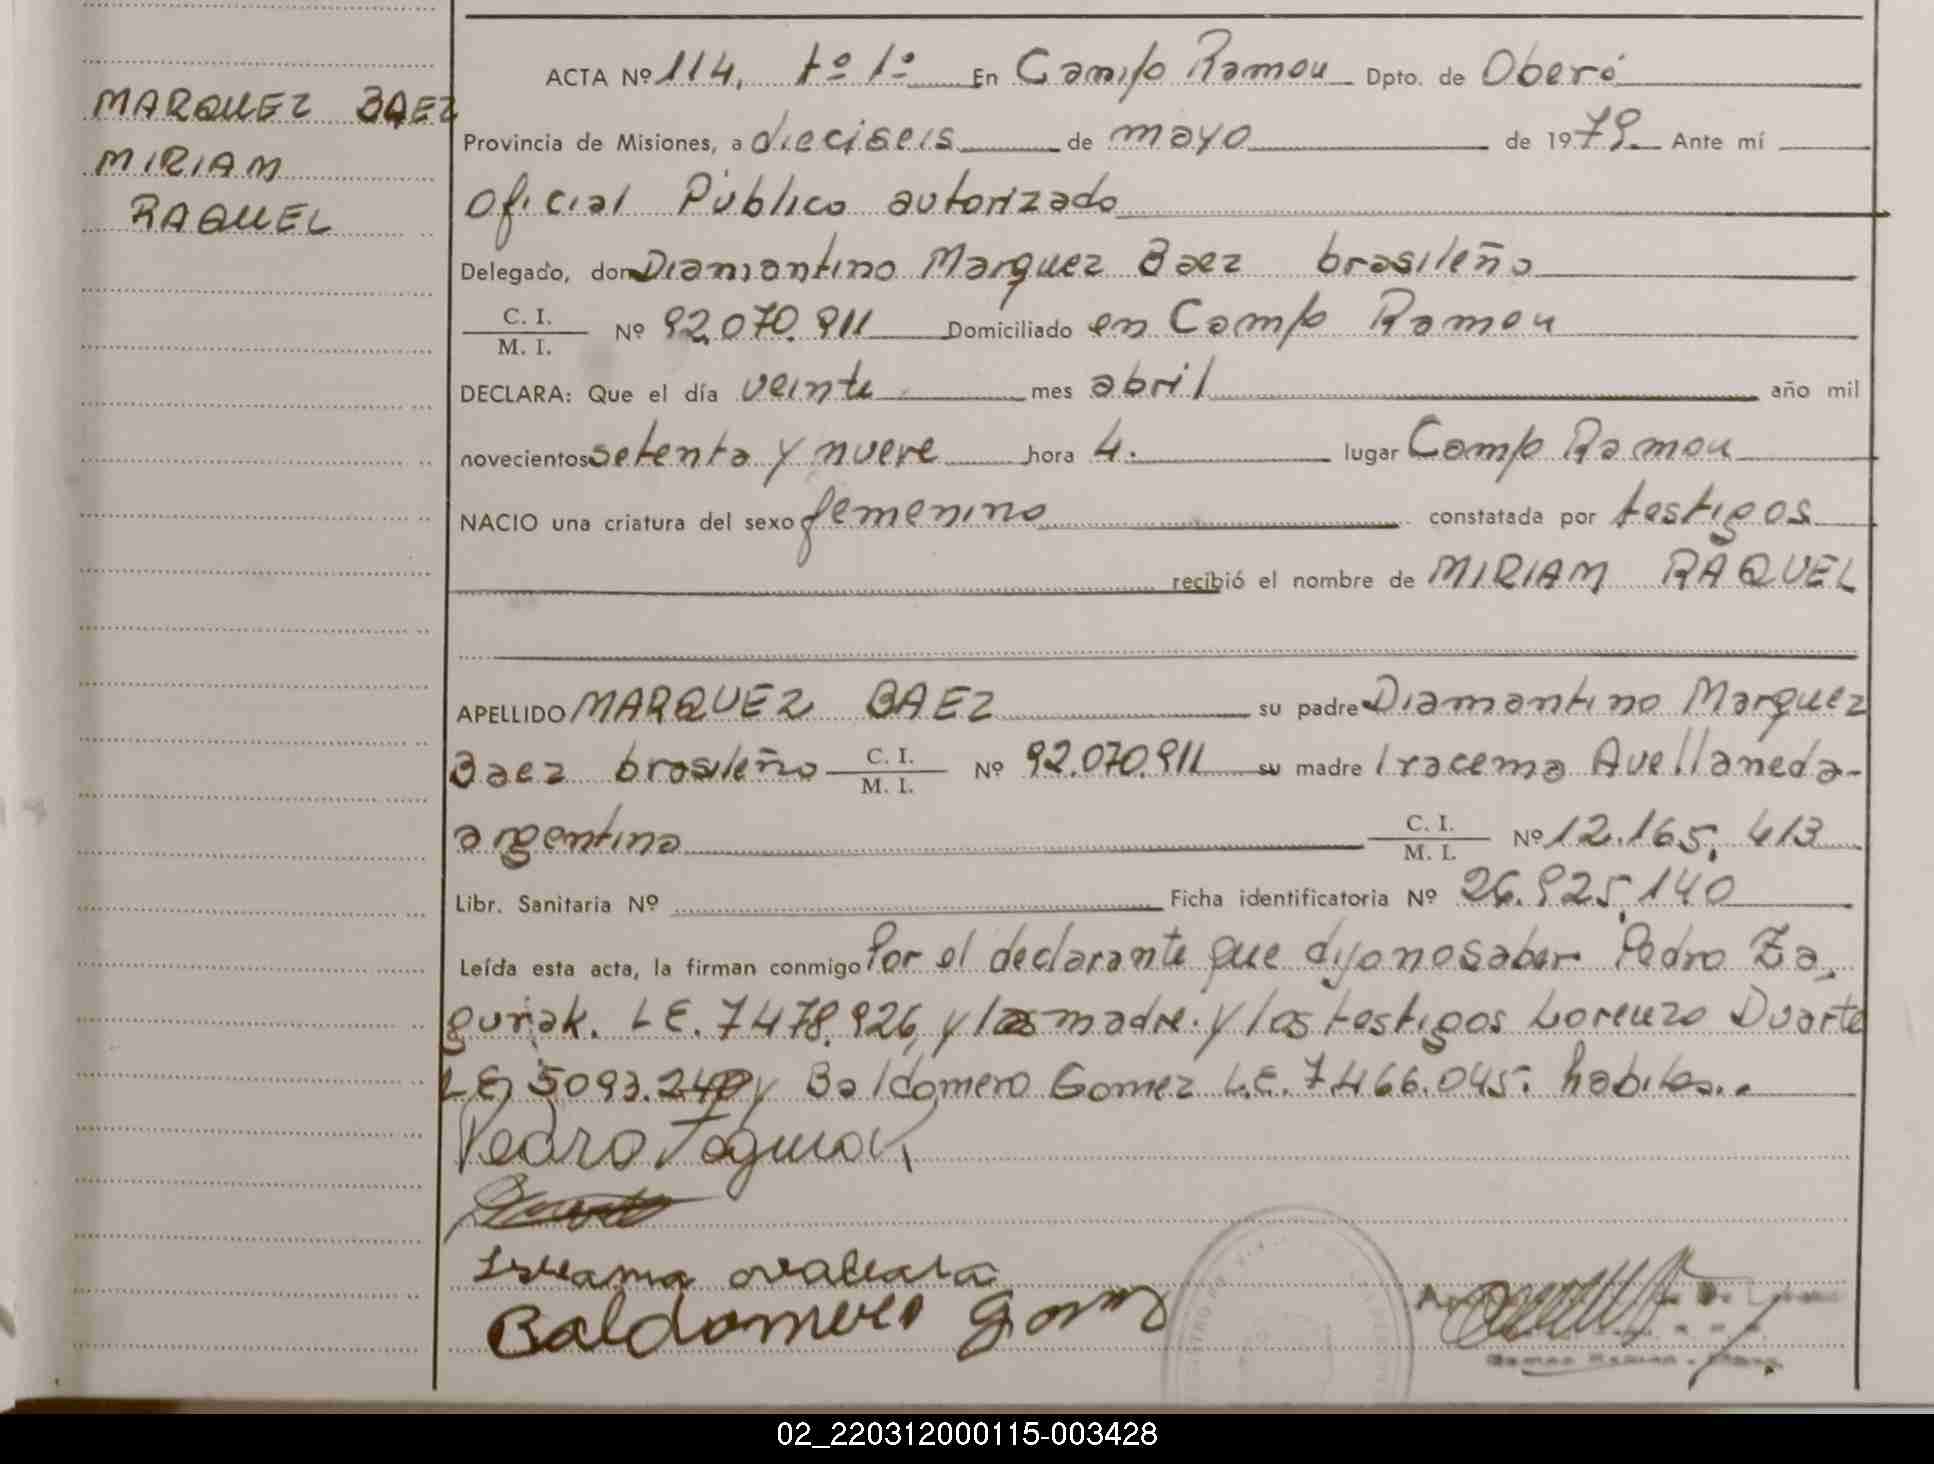 MARQUEZ BAEZ
MIRIAM
RAQUEL
ACTA Nº 114, tº 1º En Campo Ramon Dpto. de Oberá
Provincia de Misiones, a dieciseis de mayo de 1979. Ante mí
Oficial Público autorizado
Delegado, don Diamantino Marquez Baez brasileño
C. I.
M. I. Nº 92.070.911 Domiciliado en Campo Ramon
DECLARA: Que el día veinte mes abril año mil
novecientos setenta y nueve hora 4. lugar Campo Ramon
NACIO una criatura del sexo femenino constatada por testigos
recibió el nombre de MIRIAM RAQUEL
APELLIDO MARQUEZ BAEZ su padre Diamantino Marquez
Baez brasileño C. I. M. I. Nº 92.070.911 su madre Iracema Avellaneda-
argentina C. I. M. I. Nº 12.165.413
Libr. Sanitaria Nº Ficha identificatoria Nº 26.925.140
Leída esta acta, la firman conmigo Por el declarante que dijo no saber Pedro Za
gurak. LE. 7478.926, y la madre. y los testigos Lorenzo Duarte
LE, 5093.240 y Baldomero Gomez L.E. 7.466.045. habiles..
Pedro Zagurak
Baldomero Gomez
02_220312000115-003428